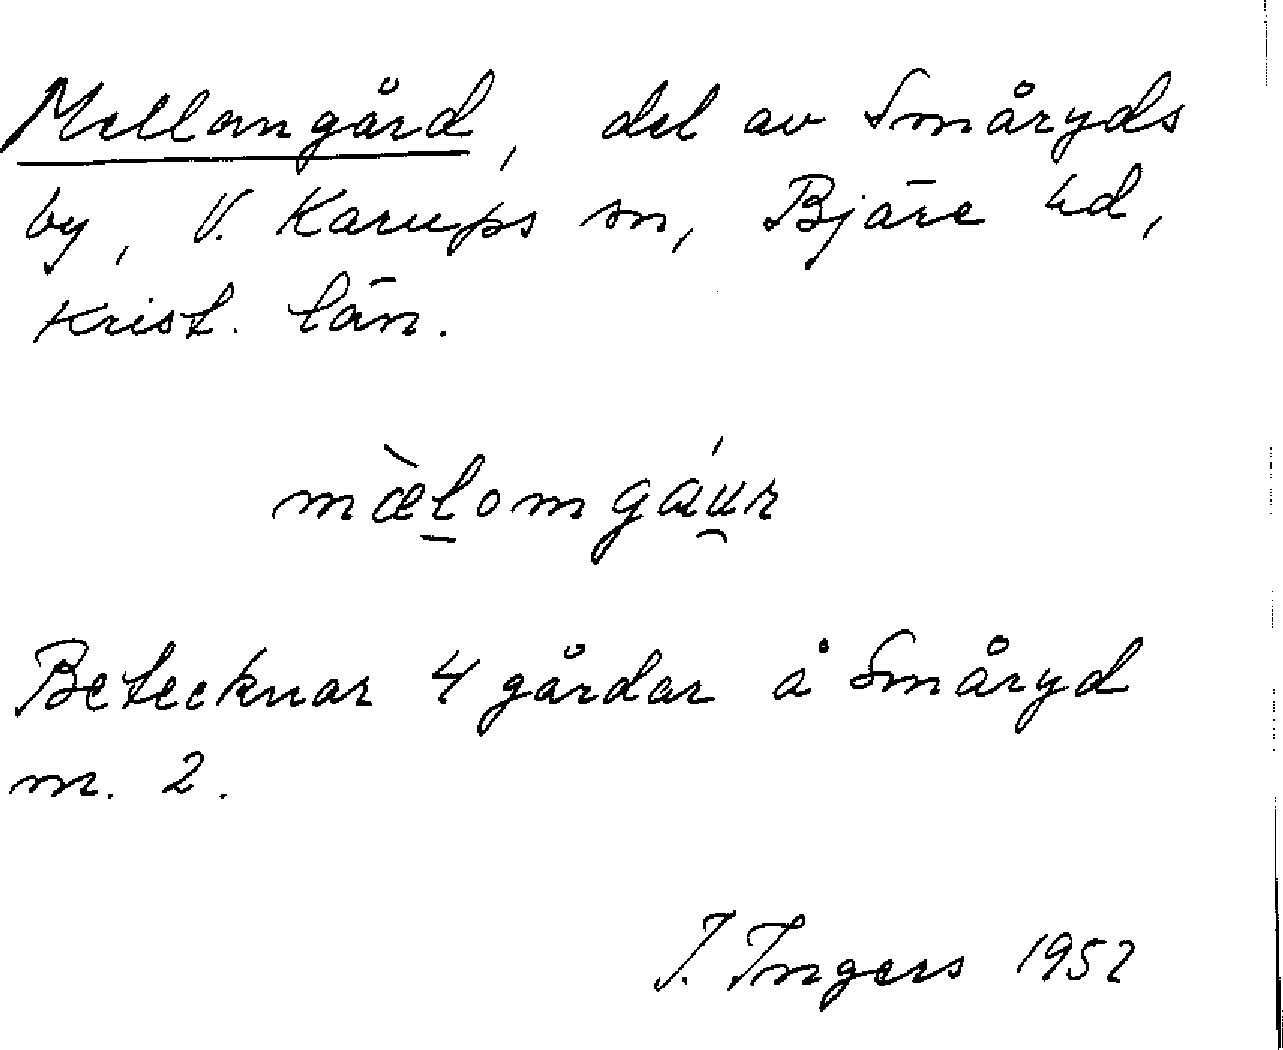 Mellomgård, del av Småryds
by, V. Karups sn, Bjäre hd,
Krist. län.
mæ̀l̠omgáu̯r
Betecknar 4 gårdar å Småryd
m. 2.
I. Ingers 1952